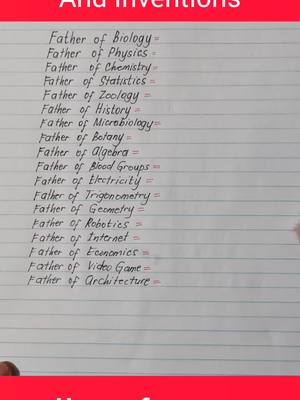 And Inventions
Father of Biology=
Father of Physics=
Father of Chemistry=
Father of Statistics=
Father of Zoology =
Father of History =
Father of Microbiology=
Father of Botany=
Father of Algebra=
Father of Blood Groups=
Father of Electricity =
Father of Trigonometry=
Father of Geometry=
Father of Robotics=
Father of Internet =
Father of Economics=
Father of Video Game=
Father of Architecture=